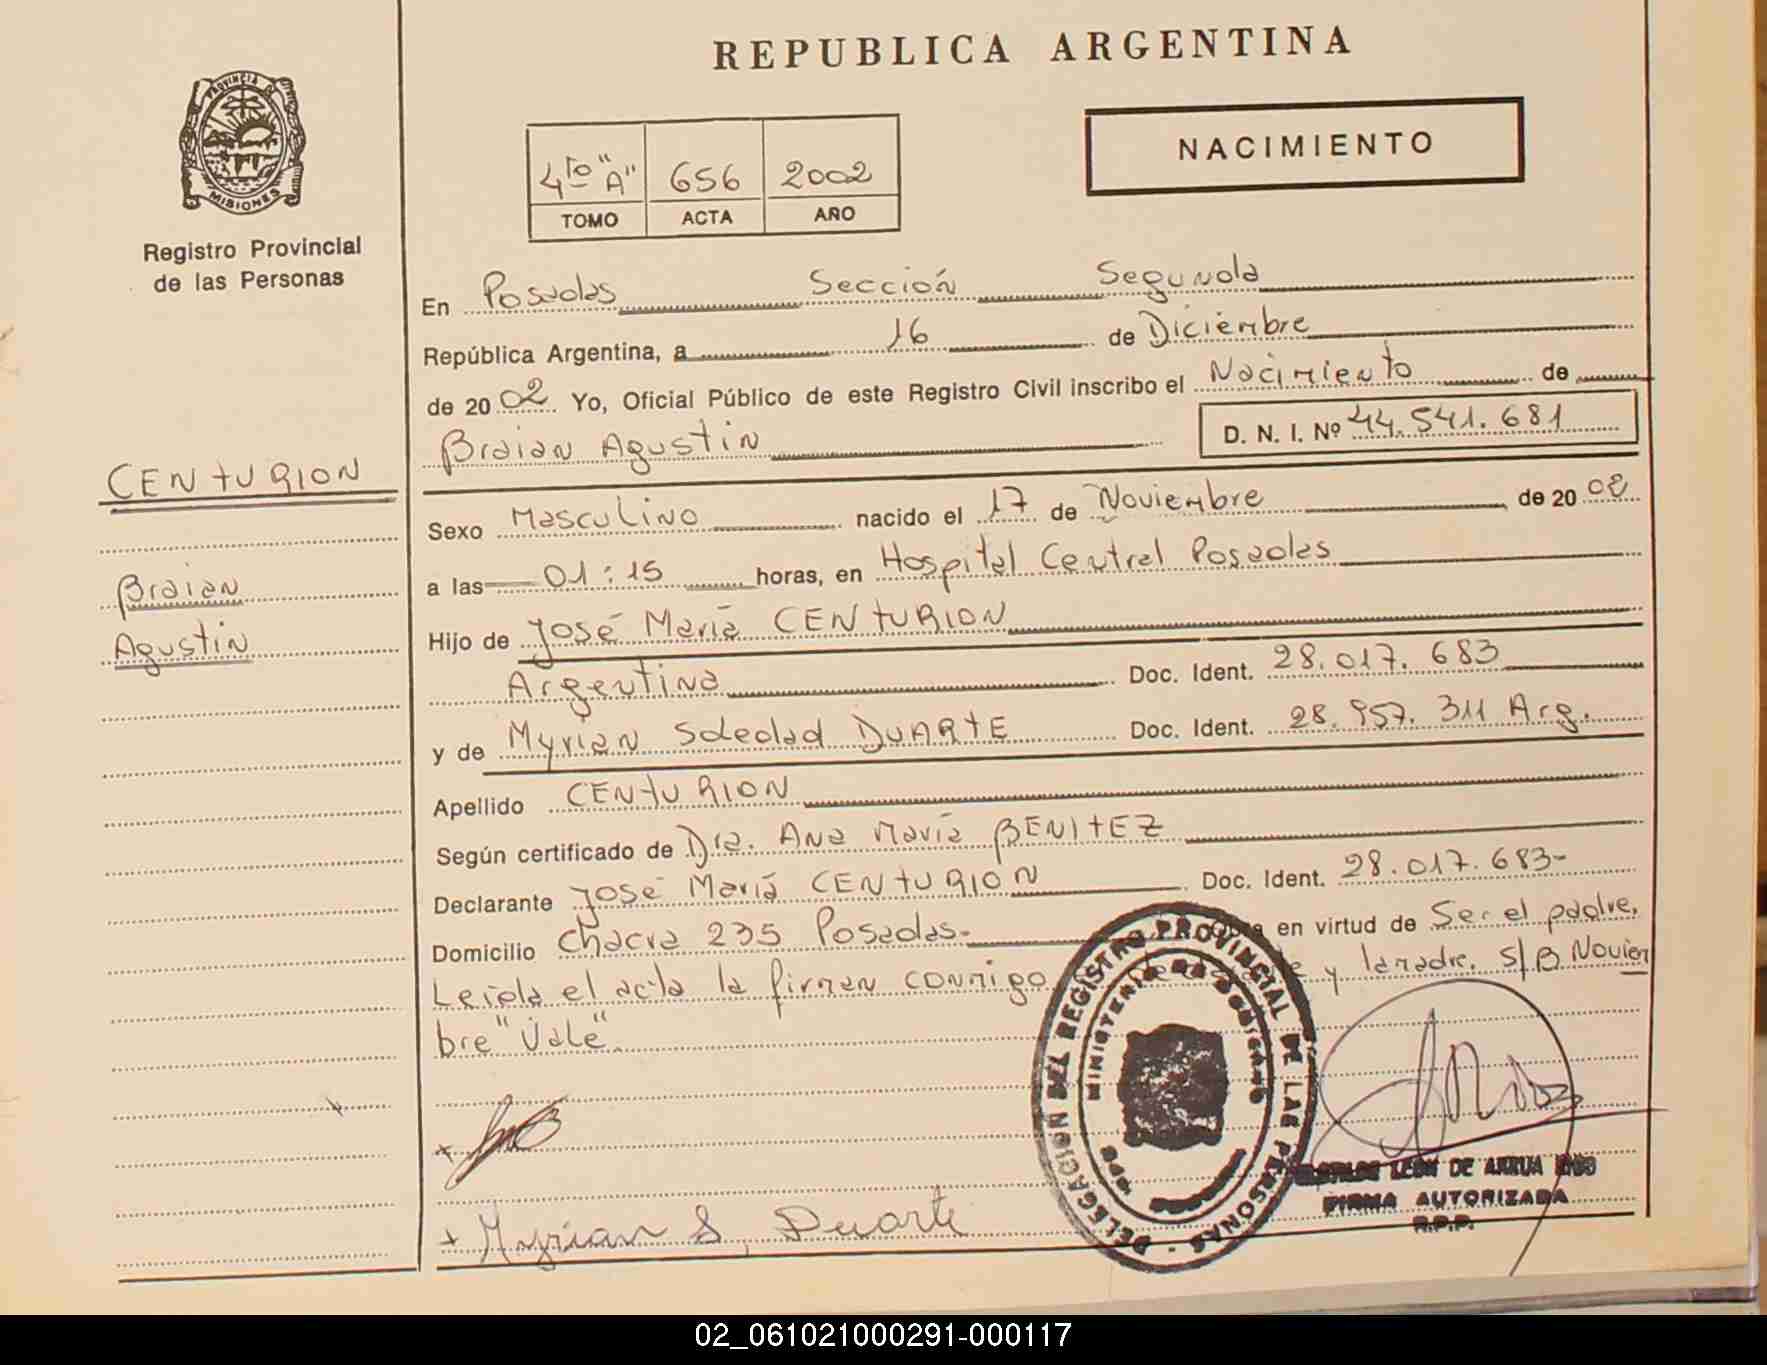 REPUBLICA ARGENTINA
PROVINCIA DE
MISIONES
Registro Provincial
de las Personas
NACIMIENTO
4to "A" 656 2002
TOMO ACTA AÑO
En Posadas Sección Segunda
República Argentina, a 16 de Diciembre
de 2002 Yo, Oficial Público de este Registro Civil inscribo el Nacimiento de
Braian Agustin D. N. I. Nº 44.541.681
CENTURION
Braian
Agustin
Sexo Masculino nacido el 17 de Noviembre de 2002
a las 01:15 horas, en Hospital Central Posadas
Hijo de José María CENTURION
Argentina Doc. Ident. 28.017.683
y de Myrian Soledad DUARTE Doc. Ident. 28.957.311 Arg.
Apellido CENTURION
Según certificado de Dra. Ana María BENITEZ
Declarante José María CENTURION Doc. Ident. 28.017.683-
Domicilio Chacra 235 Posadas.- Obra en virtud de Ser el padre,
Leida el acta la firman conmigo y la madre. S/B Noviem
bre "Vale".
DELEGACION DEL REGISTRO PROVINCIAL DE LAS PERSONAS
MINISTERIO DE GOBIERNO
+ Myrian S. Duarte
LEON DE ARRUA
FIRMA AUTORIZADA
R.P.P.
02_061021000291-000117